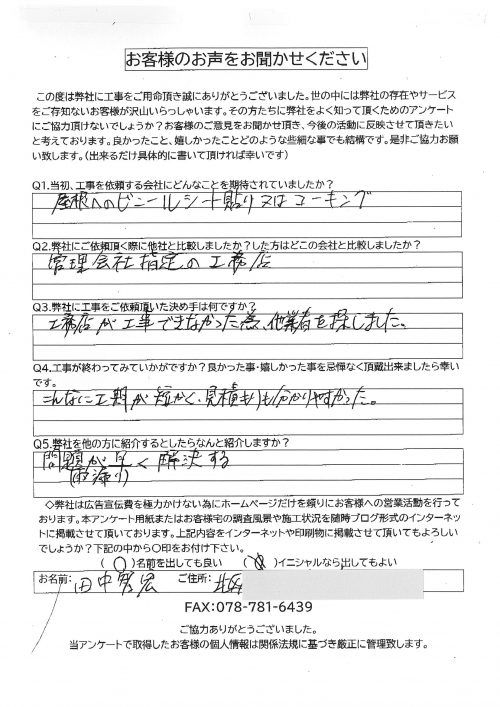 お客様のお声をお聞かせください
この度は弊社に工事をご用命頂き誠にありがとうございました。世の中には弊社の存在やサービス
をご存知ないお客様が沢山いらっしゃいます。その方たちに弊社をよく知って頂くためのアンケート
にご協力頂けないでしょうか?お客様のご意見をお聞かせ頂き、今後の活動に反映させて頂きたい
と考えております。良かったこと、嬉しかったことどのような些細な事でも結構です。是非ご協力お願
い致します。(出来るだけ具体的に書いて頂ければ幸いです)
Q1.当初、工事を依頼する会社にどんなことを期待されていましたか?
屋根へのビニールシート貼り又はコーキング
Q2.弊社にご依頼頂く際に他社と比較しましたか?した方はどこの会社と比較しましたか?
管理会社指定の工務店
Q3.弊社に工事をご依頼頂いた決め手は何ですか?
工務店が工事できなかった為、他業者を探しました。
Q4.工事が終わってみていかがですか?良かった事・嬉しかった事を忌憚なく頂戴出来ましたら幸い
です。
こんなに工期が短かく、見積もりも分かりやすかった。
Q5.弊社を他の方に紹介するとしたらなんと紹介しますか?
問題が早く解決する
(雨漏り)
◇弊社は広告宣伝費を極力かけない為にホームページだけを頼りにお客様への営業活動を行って
おります。本アンケート用紙またはお客様宅の調査風景や施工状況を随時ブログ形式のインターネッ
トに掲載させて頂いております。上記内容をインターネットや印刷物に掲載させて頂いてもよろしい
でしょうか?下記の中から○印をお付け下さい。
( ○ )名前を出しても良い ( )イニシャルなら出してもよい
お名前: 田中 ご住所: 北区
FAX:078-781-6439
ご協力ありがとうございました。
当アンケートで取得したお客様の個人情報は関係法規に基づき厳正に管理致します。